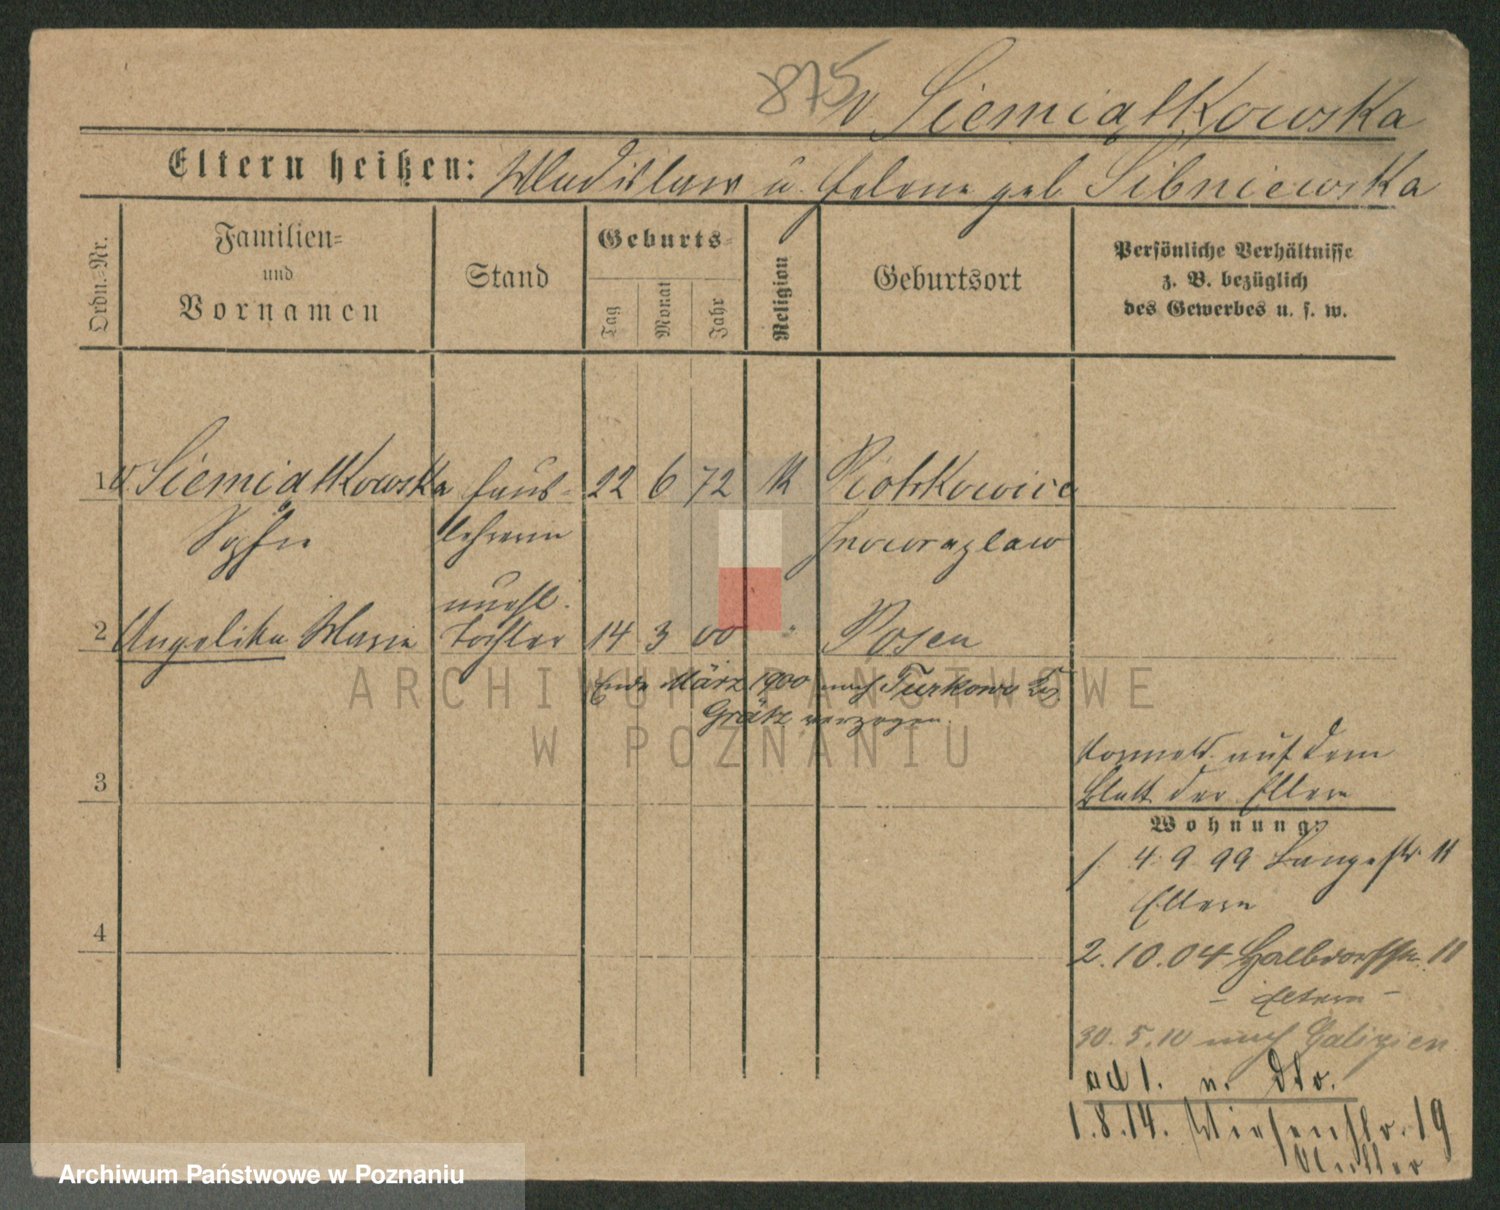 875
v. Siemiątkowska
Eltern heißen: Wladislaw u. Helene geb Sibniewska
Ordn.-Nr.
Familien-
und
Vornamen
Stand
Geburts-
Tag
Monat
Jahr
Religion
Geburtsort
Persönliche Verhältnisse
z. B. bezüglich
des Gewerbes u. s. w.
1 v. Siemiatkowska Haus- 22 6 72 K Piotrkowice
Sophie lehrerin Inowrazlaw
unehl.
2 Angelika Maria Tochter 14 3 00 " Posen
Ende März 1900 nach Turkowo Krs
Grätz verzogen.
3
Vormeld. auf dem
Blatt der Eltern
Wohnung:
1. 4. 9. 99 Langestr. 11
Eltern
4
2.10.04 Halbdorfstr. 11
- Eltern -
30. 5. 10 nach Galizien
ad 1. n. dto.
1.8.14. Wiesenstr. 19
Mutter
ARCHIWUM PAŃSTWOWE
W POZNANIU
Archiwum Państwowe w Poznaniu